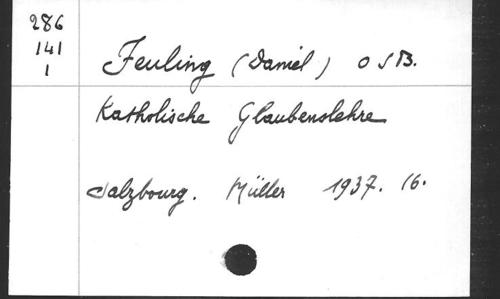 286
141
1
Feuling (Daniel) O S B.
Katholische Glaubenslehre
Salzbourg. Müller 1937. 16.